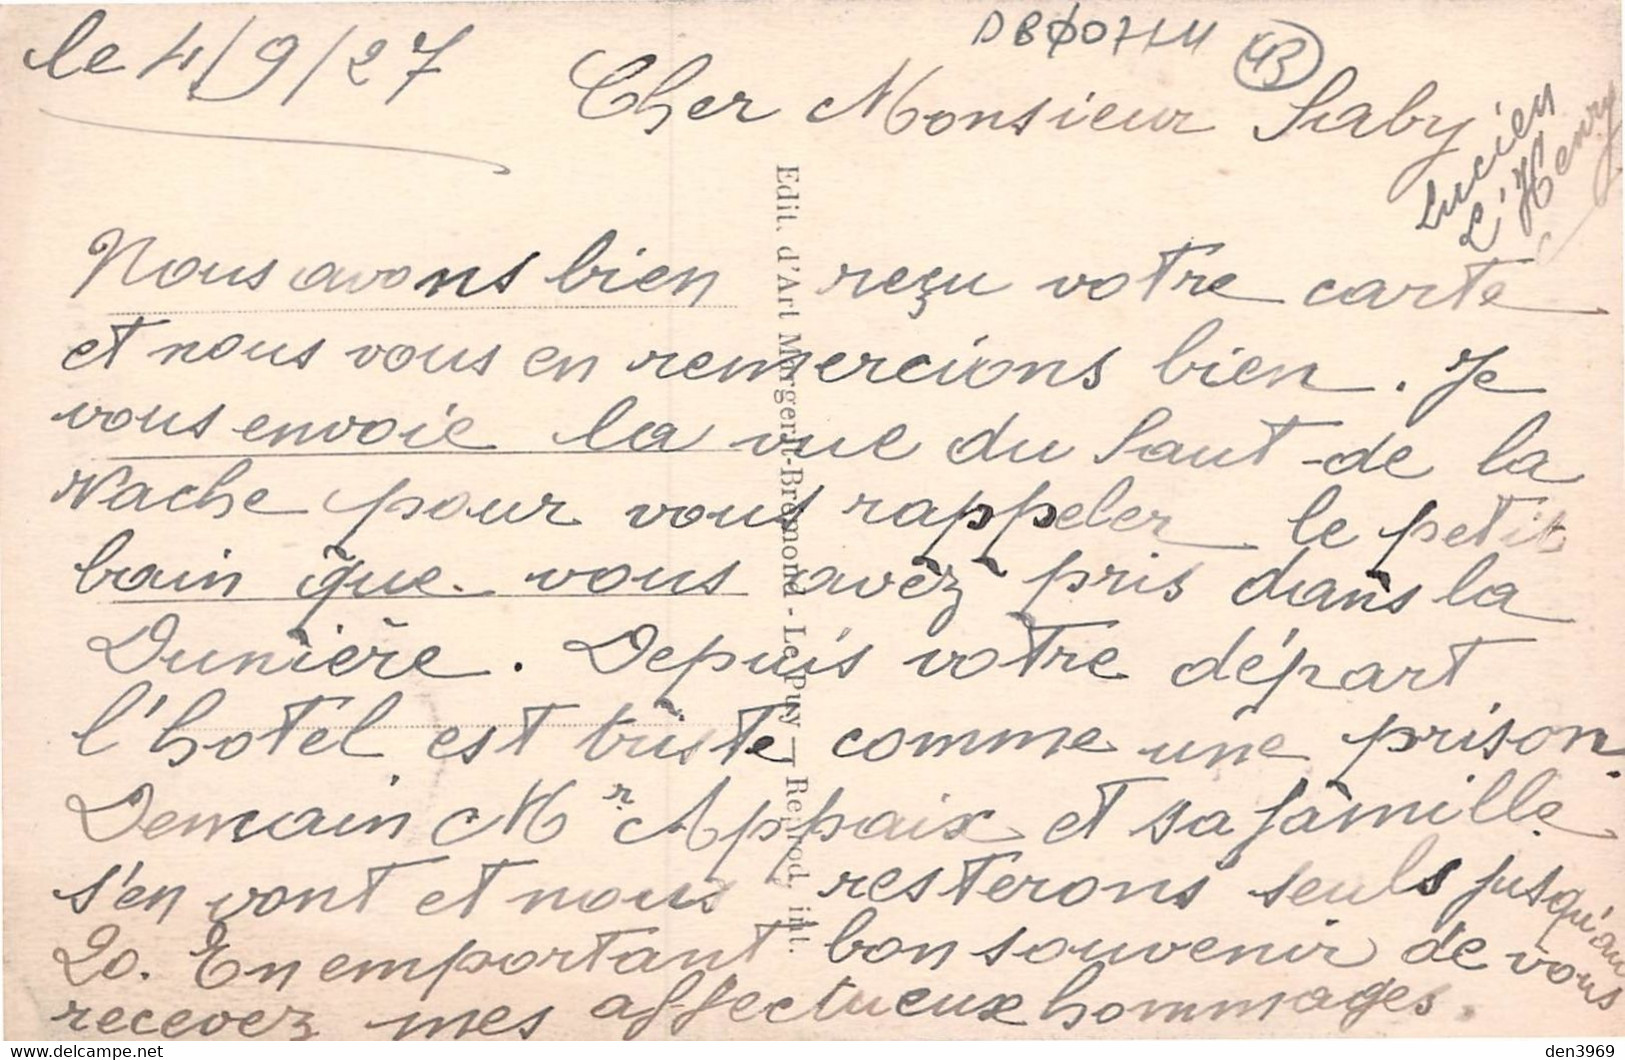 le 4/9/27
Cher Monsieur Saby
Nous avons bien reçu votre carte
et nous vous en remercions bien. Je
vous envoie la vue du Saut-de la
Vache pour vous rappeler le petit
bain que vous avez pris dans la
Dunière. Depuis votre départ
l'hotel est triste comme une prison.
Demain Mr Appaix et sa famille
s'en vont et nous resterons seuls jusqu'au
20. En emportant bon souvenir de vous
recevez mes affectueux hommages.
Lucien
L'Henry
43
Edit. d'Art Margerit-Brémond - Le Puy — Reprod. int.
den3969